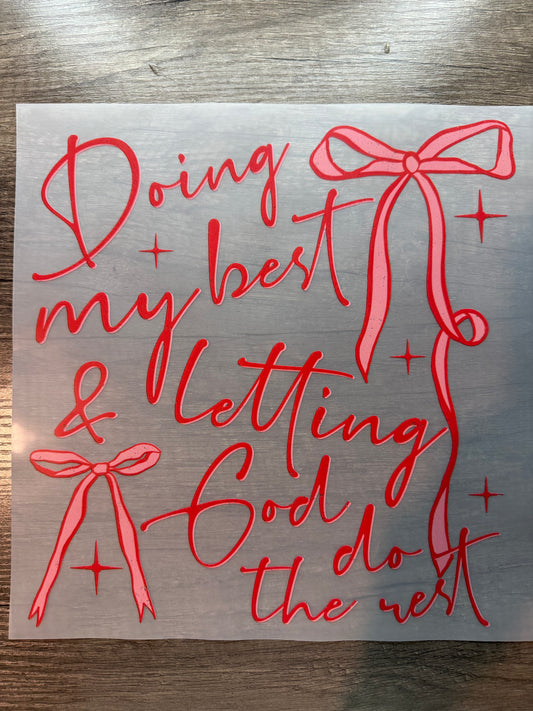 Doing
my best
& letting
God do
the rest